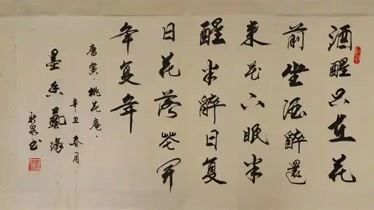 酒醒只在花
前坐酒醉還
來花下眠半
醒半醉日復
日花落花開
年復年
唐寅·桃花庵·
辛丑春月
墨香藝緣
書